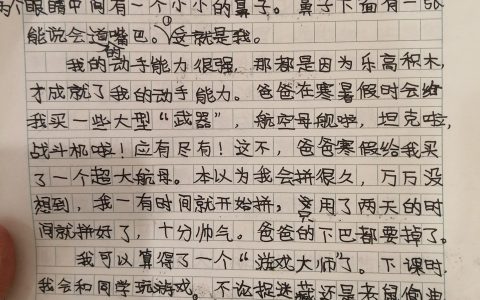 两个眼睛中间有一个小小的鼻子。鼻子下面有一张
能说会道的嘴巴。这就是我。
我的动手能力很强,那都是因为乐高积木,
才成就了我的动手能力。爸爸在寒暑假时会给
我买一些大型“武器”,航空母舰啦,坦克啦,
战斗机啦!应有尽有!这不,爸爸寒假给我买
了一个超大航母。本以为我会拼很久,万万没
想到,我一有时间就开始拼,只用了两天的时
间就拼好了,十分帅气。爸爸的下巴都要掉了。
我可以算得了一个“游戏大师”了。下课时,
我会和同学玩游戏。不论捉迷藏还是老鼠偷油